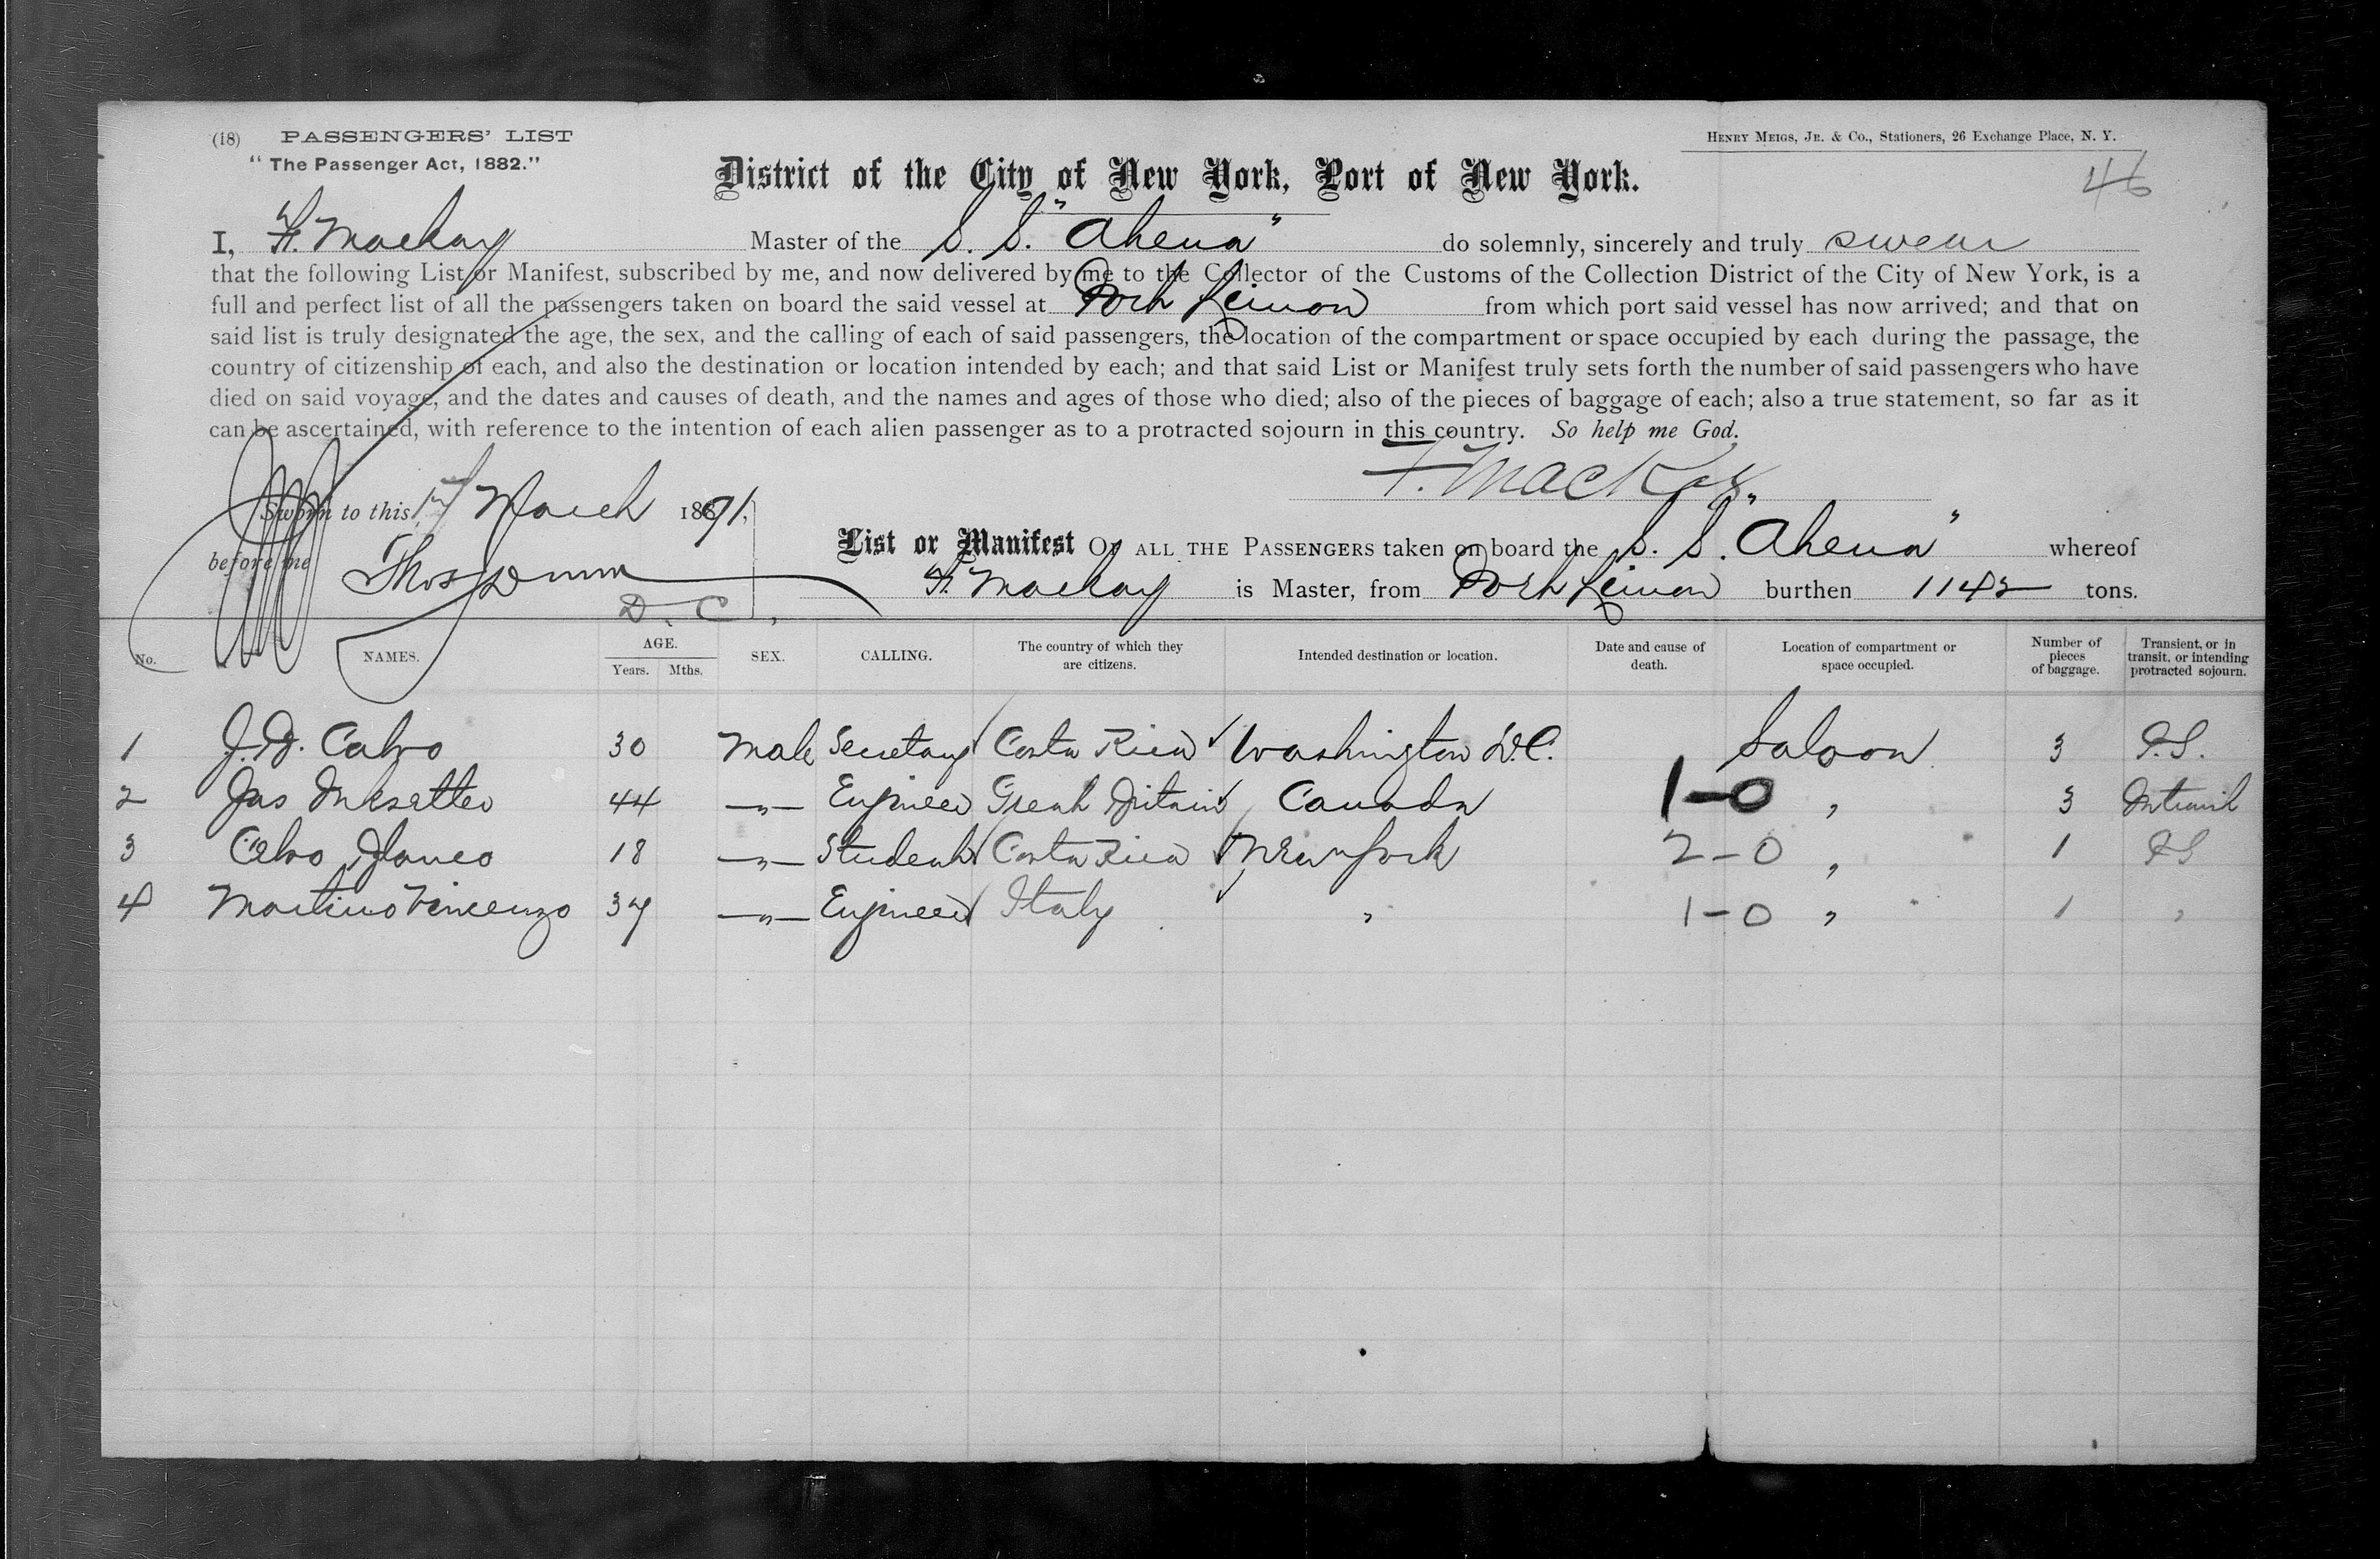 (18) PASSENGERS' LIST
"The Passenger Act, 1882."
HENRY MEIGS, JR. & Co., Stationers, 26 Exchange Place, N. Y.
46
District of the City of New York, Port of New York.
I, F. Mackay Master of the S. S. "Athena" do solemnly, sincerely and truly swear
that the following List or Manifest, subscribed by me, and now delivered by me to the Collector of the Customs of the Collection District of the City of New York, is a
full and perfect list of all the passengers taken on board the said vessel at Port Limon from which port said vessel has now arrived; and that on
said list is truly designated the age, the sex, and the calling of each of said passengers, the location of the compartment or space occupied by each during the passage, the
country of citizenship of each, and also the destination or location intended by each; and that said List or Manifest truly sets forth the number of said passengers who have
died on said voyage, and the dates and causes of death, and the names and ages of those who died; also of the pieces of baggage of each; also a true statement, so far as it
can be ascertained, with reference to the intention of each alien passenger as to a protracted sojourn in this country. So help me God.
F. Mackay
Sworn to this 17 March 1891,
before me Thos Dunn
D. C.
List or Manifest OF ALL THE PASSENGERS taken on board the S. S. "Athena" whereof
F. Mackay is Master, from Port Limon burthen 1142 tons.
No. NAMES. AGE. Years. Mths. SEX. CALLING. The country of which they are citizens. Intended destination or location. Date and cause of death. Location of compartment or space occupied. Number of pieces of baggage. Transient, or in transit, or intending protracted sojourn.
1 J. B. Calvo 30 Male Secretary Costa Rica Washington D.C. Saloon 3 P.S.
2 Jas 44 —"— Engineer Great Britain Canada 1-0 " 3 Intransit
3 Calvo 18 —"— Student Costa Rica New York 2-0 " 1 PS
4 Martino Vincenzo 37 —"— Engineer Italy " 1-0 " 1 "